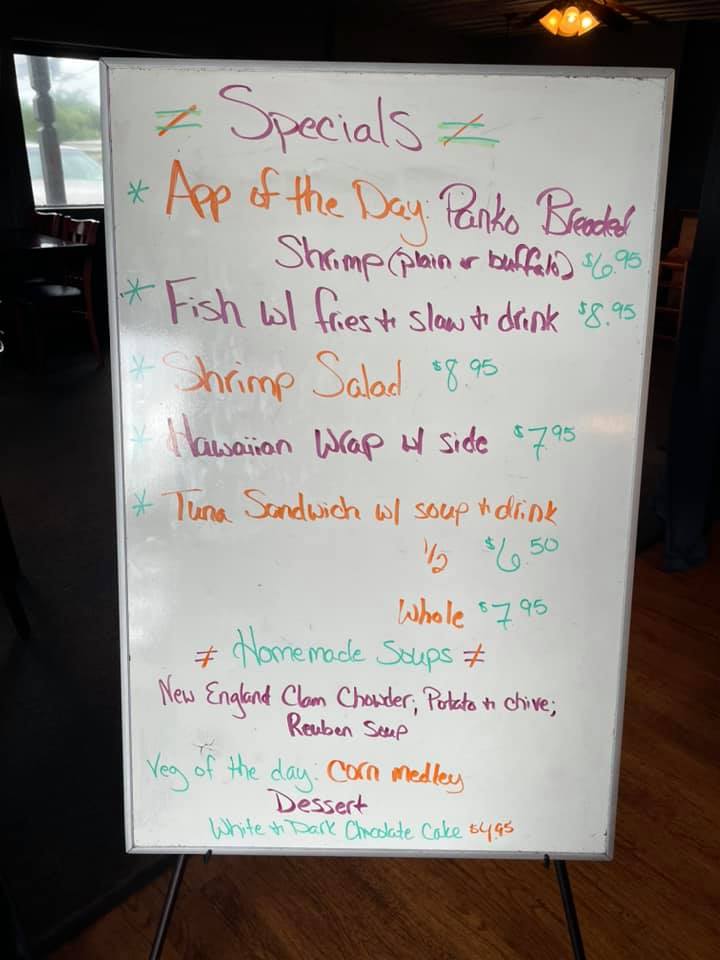 ≠ Specials ≠
* App of the Day: Panko Breaded
Shrimp (plain or buffalo) $6.95
* Fish w/ fries + slaw + drink $8.95
* Shrimp Salad $8.95
* Hawaiian Wrap w/ side $7.95
* Tuna Sandwich w/ soup + drink
1/2 $6.50
Whole $7.95
≠ Homemade Soups ≠
New England Clam Chowder; Potato + chive;
Reuben Soup
Veg of the day: Corn medley
Dessert
White + Dark Chocolate Cake $4.95